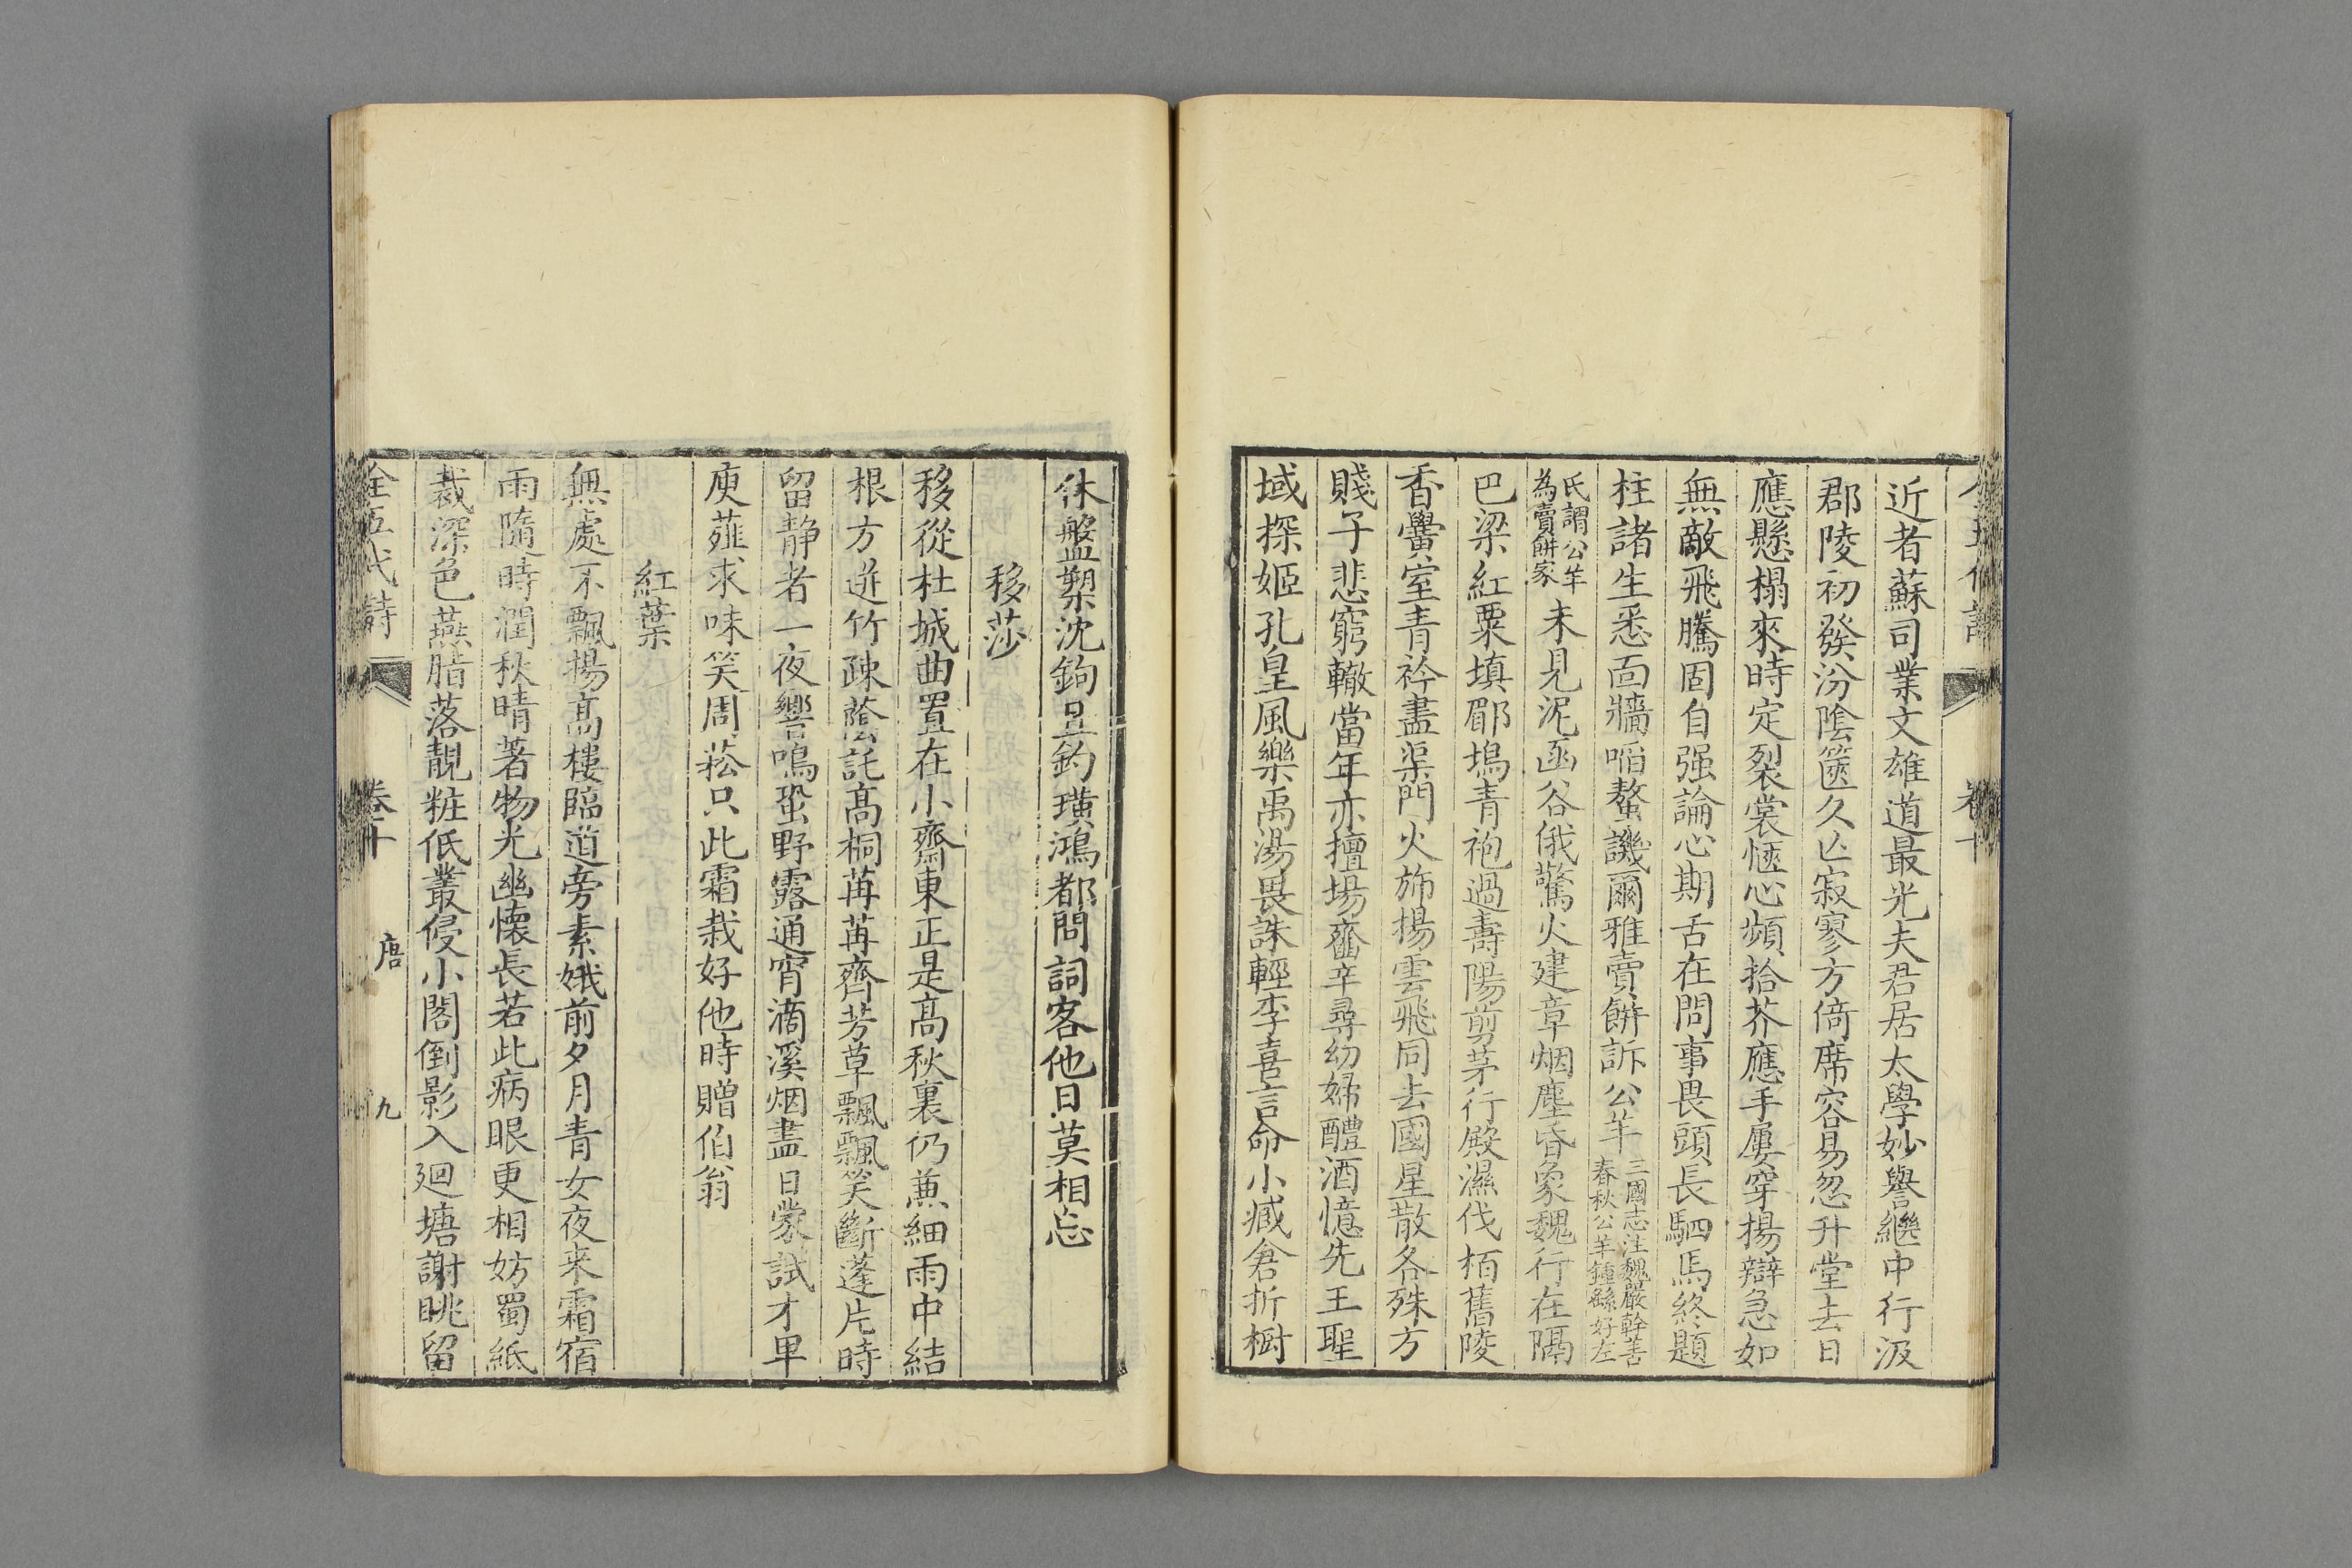 全五代詩
卷十
近者蘇司業文雄道最光夫君居太學妙譽繼中行汲
郡陵初發汾陰篋久亡寂寥方倚席容易忽升堂去日
應懸榻來時定裂裳愜心頻拾芥應手屢穿楊辯急如
無敵飛騰固自强論心期舌在問事畏頭長駟馬終題
柱諸生悉面牆啗螯譏爾雅賣餅訴公羊三國志注魏嚴幹善
春秋公羊鍾繇好左
氏謂公羊
為賣餅家未見泥函谷俄驚火建章烟塵昏象魏行在隔
巴梁紅粟填郿塢青袍過壽陽剪茅行殿濕伐栢舊陵
香黌室青衿盡渠門火斾揚雲飛同去國星散各殊方
賤子悲窮轍當年亦擅場齏辛尋幼婦醴酒憶先王聖
域探姬孔皇風樂禹湯畏誅輕李喜言命小臧倉折樹
休盤槊沈鉤且釣璜鴻都問詞客他日莫相忘
移莎
移從杜城曲置在小齋東正是高秋裏仍蒹細雨中結
根方迸竹疎蔭託高桐苒苒齊芳草飄飄笑斷蓬片時
留静者一夜響鳴蛩野露通宵滴溪烟盡日蒙試才卑
庾薤求味笑周菘只此霜栽好他時贈伯翁
紅葉
無處不飄揚高樓臨道旁素娥前夕月青女夜來霜宿
雨隨時潤秋晴著物光幽懷長若此病眼更相妨蜀紙
裁深色燕脂落靚粧低叢侵小閣倒影入廻塘謝眺留
全五代詩
卷十
唐
九